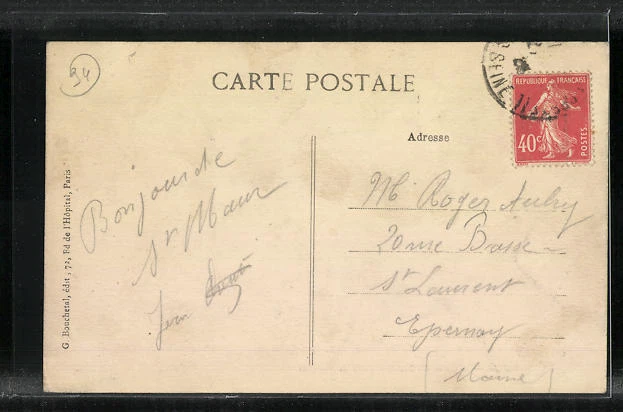 94
CARTE POSTALE
SEINE
REPUBLIQUE FRANÇAISE
40c
POSTES.
Adresse
G. Bouchetal, édit ; 72, Bd de l'Hôpital, Paris
Bonjour de
St Maur
Jean
Mr Roger Aubry
20 rue Basse
St Laurent
Epernay
(Marne)